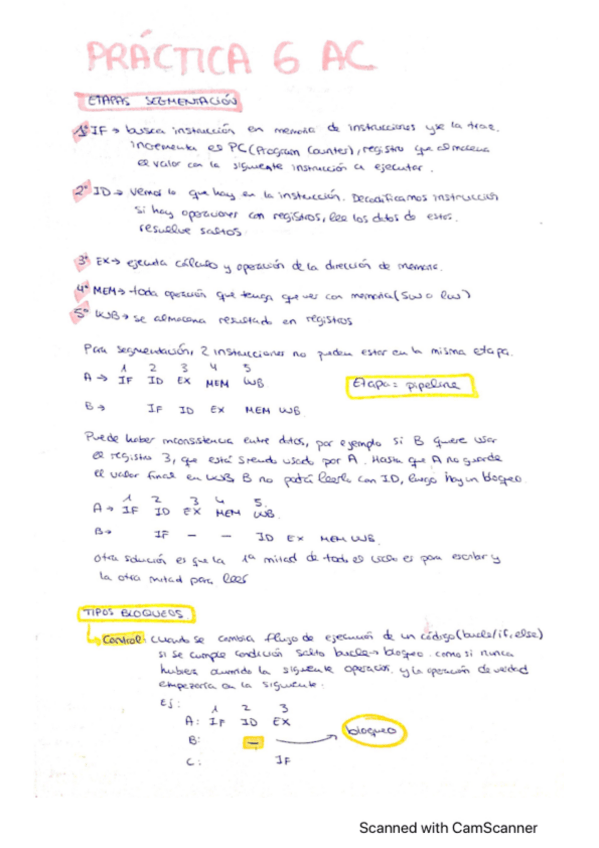 PRÁCTICA 6 AC
ETAPAS SEGMENTACIÓN
1ª IF → busca instrucción en memoria de instrucciones y se la trae.
incrementa es PC (Program Counter), registro que almacena
el valor con la siguiente instrucción a ejecutar.
2ª ID → vemos lo que hay en la instrucción. Decodificamos instrucción
si hay operaciones con registros, lee los datos de estos.
resuelve saltos.
3ª EX → ejecuta cálculo y operación de la dirección de memoria.
4ª MEM → toda operación que tenga que ver con memoria (SW o LW)
5ª WB → se almacena resultado en registros
Para segmentación, 2 instrucciones no pueden estar en la misma etapa.
1 2 3 4 5
A → IF ID EX MEM WB
Etapa = pipeline
B → IF ID EX MEM WB
Puede haber inconsistencia entre datos, por ejemplo si B quiere usar
el registro 3, que está siendo usado por A. Hasta que A no guarde
el valor final en WB B no podrá leerlo con ID, luego hay un bloqueo
1 2 3 4 5
A → IF ID EX MEM WB
B → IF - - ID EX MEM WB
Otra solución es que la 1ª mitad de todo el ciclo es para escribir y
la otra mitad para leer
TIPOS BLOQUEOS
Control: cuando se cambia flujo de ejecución de un código (bucle/if, else)
si se cumple condición salto bucle → bloqueo. como si nunca
hubiera ocurrido la siguiente operación, y la operación de verdad
empezaría en la siguiente.
Ej:
1 2 3
A: IF ID EX
B: - → bloqueo
C: IF
Scanned with CamScanner